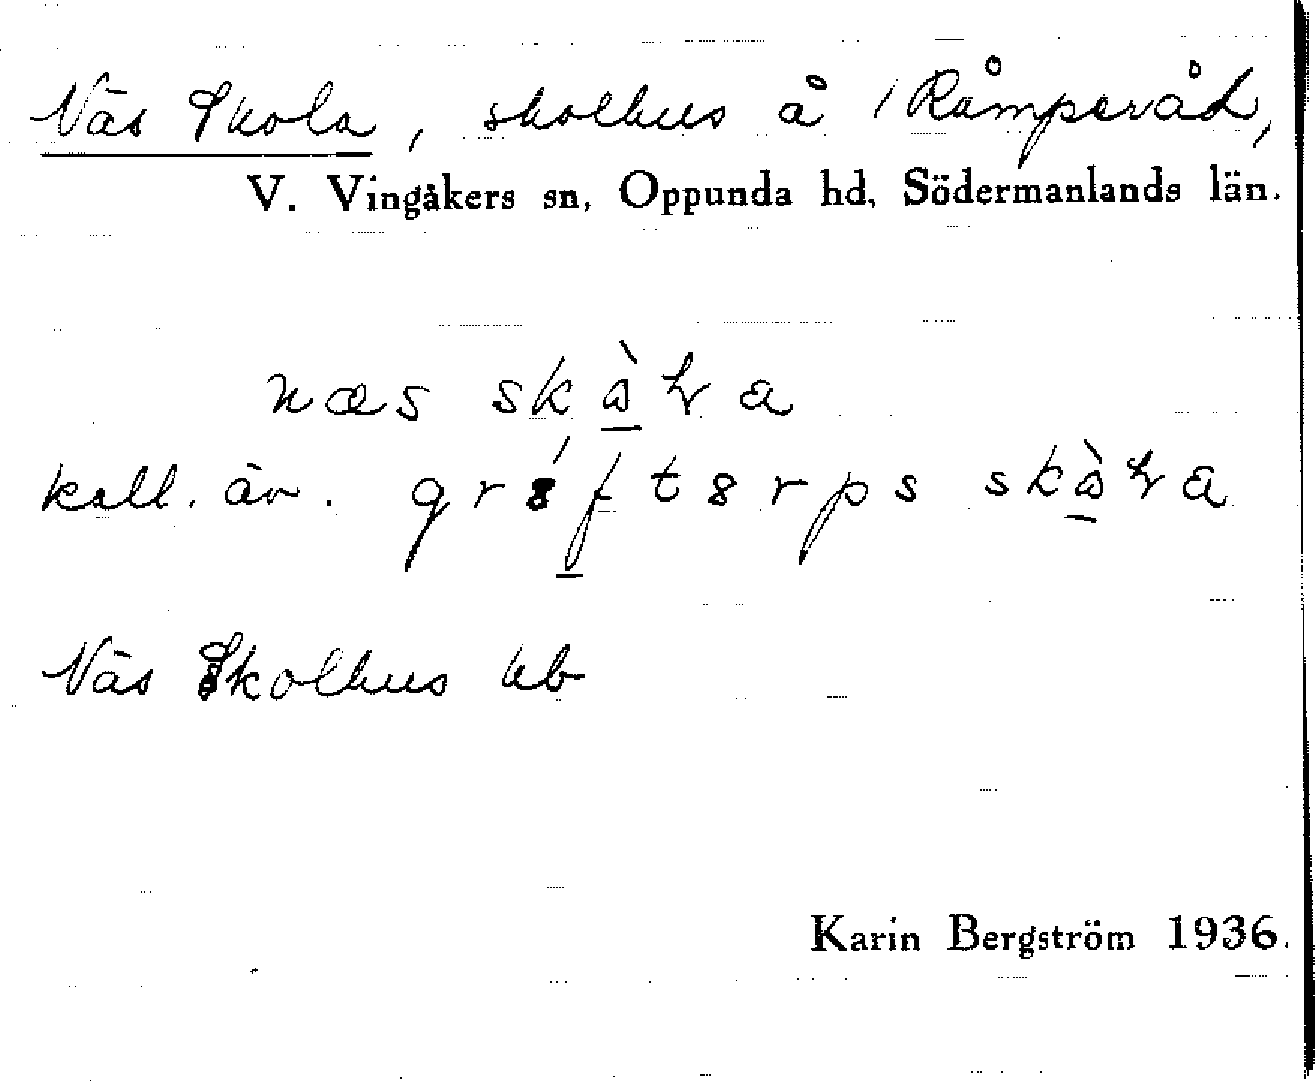 Näs Skola, skolhus å Råmpsråd,
V. Vingåkers sn, Oppunda hd, Södermanlands län.
næs
kall. äv.
Näs Skolhus kb
Karin Bergström 1936.